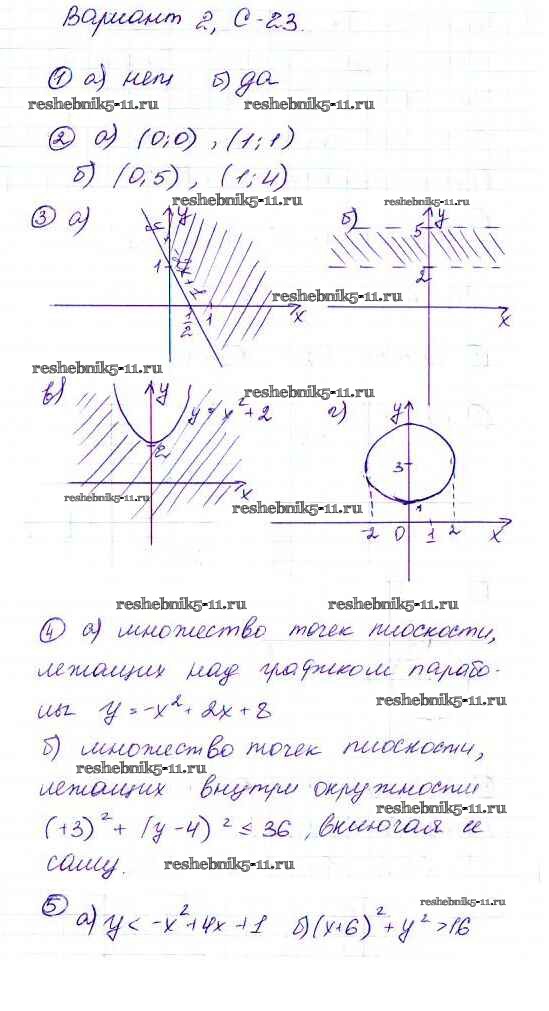 Вариант 2, С-23.
① а) нет б) да
reshebnik5-11.ru reshebnik5-11.ru
② а) (0;0), (1;1)
б) (0;5), (1;4)
reshebnik5-11.ru reshebnik5-11.ru
③ а) y y=-2x+1 1 1/2 1 x
б) y 5 2 x
reshebnik5-11.ru
reshebnik5-11.ru reshebnik5-11.ru
в) y y=x²+2 2 x
г) y 3 1 -2 0 1 2 x
reshebnik5-11.ru reshebnik5-11.ru
reshebnik5-11.ru reshebnik5-11.ru
④ а) множество точек плоскости,
лежащих над графиком парабо-
reshebnik5-11.ru
лы y=-x²+2x+8
б) множество точек плоскости,
reshebnik5-11.ru
лежащих внутри окружности
reshebnik5-11.ru
(+3)²+(y-4)²≤36, включая и
саму. reshebnik5-11.ru
reshebnik5-11.ru
⑤ а) y<-x²+4x+1 б) (x+6)²+y²>16